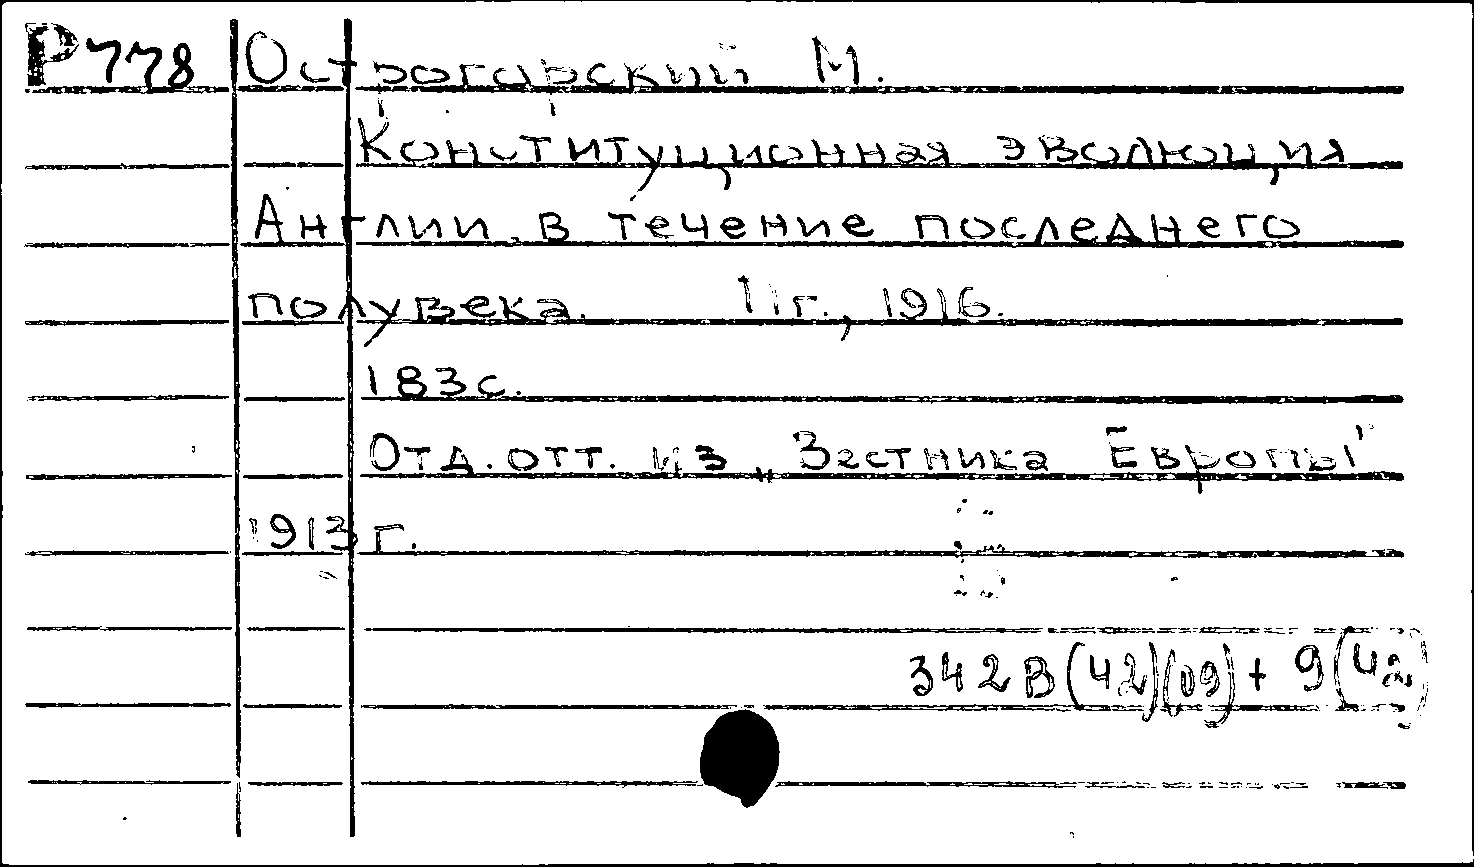 Р778 Острогорский М.
Конституционная эволюция
Англии в течение последнего
полувека. Пг., 1916.
183с.
Отд. отт. из „Вестника Европы"
1913г.
342В(42)(09)+9(42)